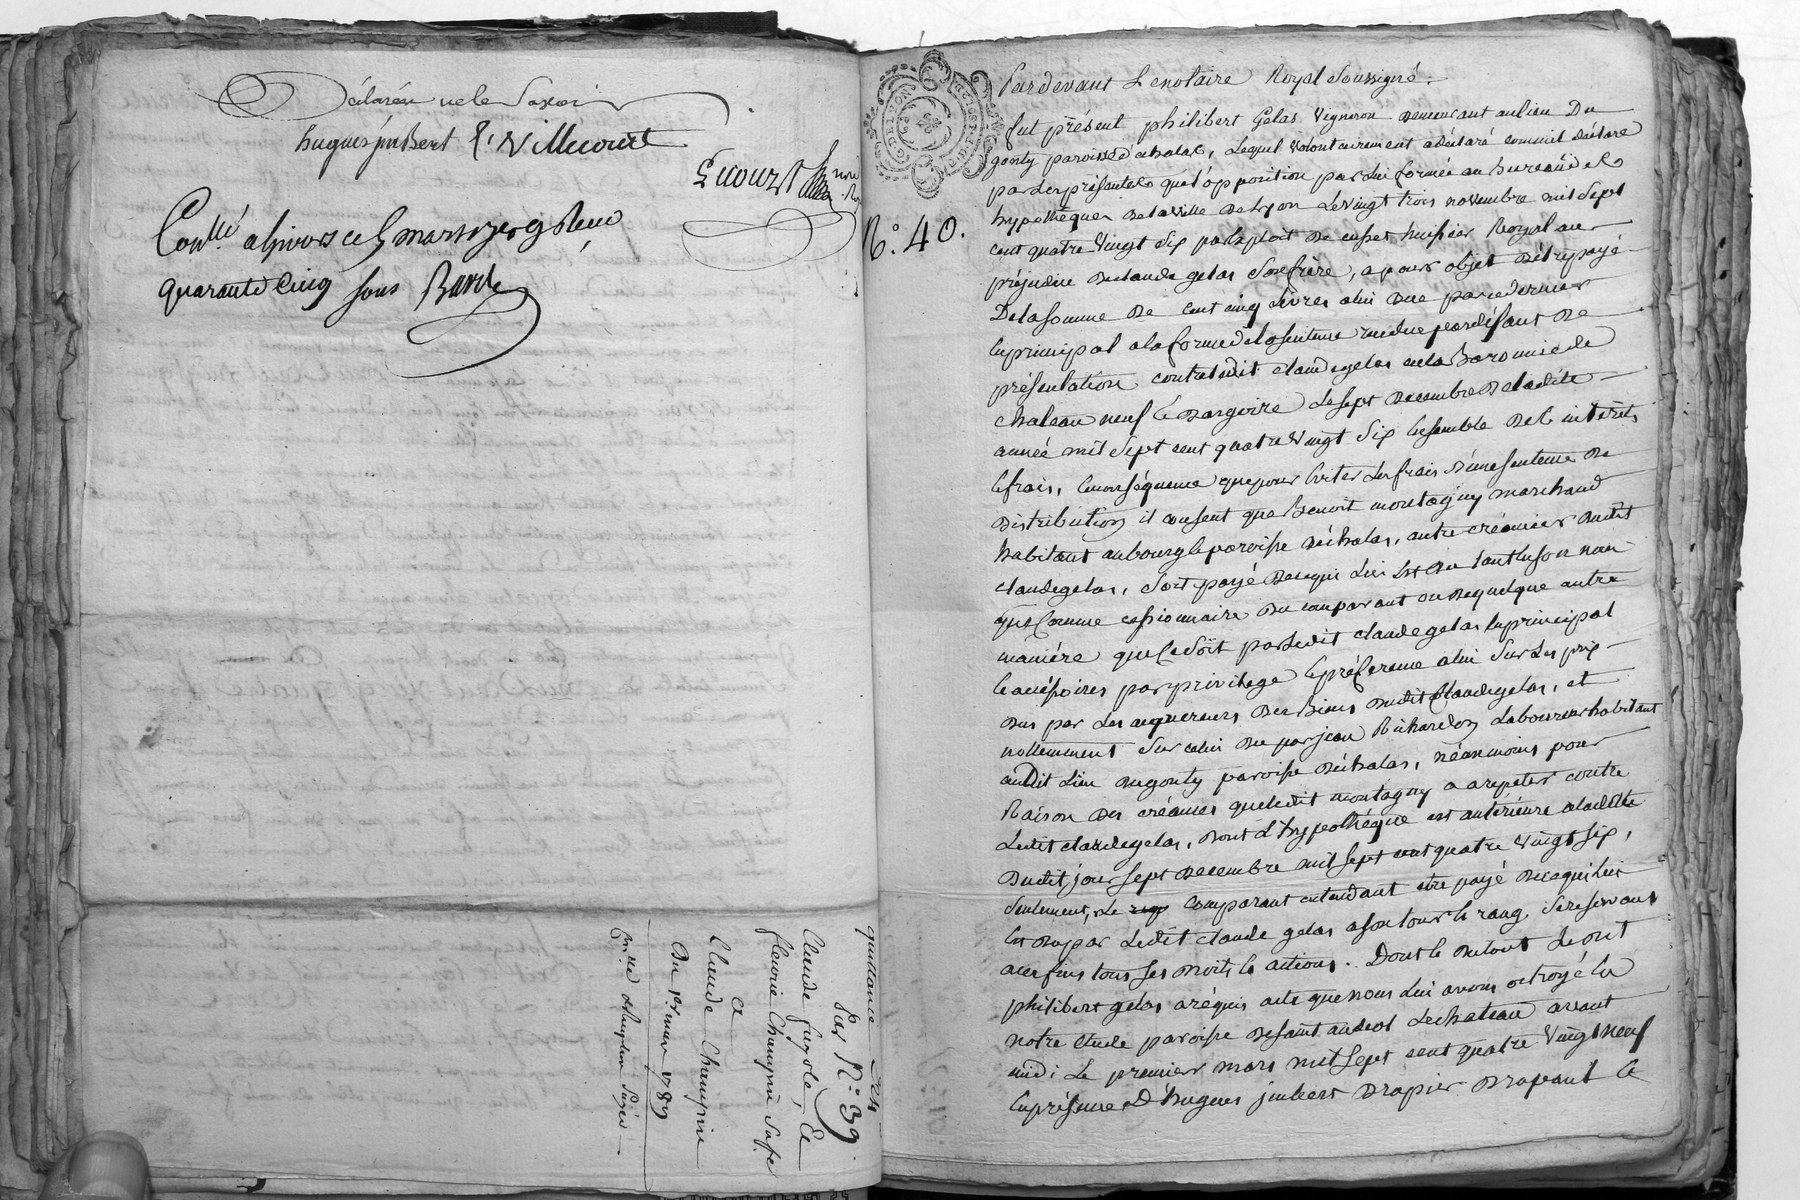 déclaré ne le savoir
hugues jmbert f. Villecourt
Lecourt
Conllé a givors ce 5 mars 1789 Reçu
quarante cinq sous Barde
quittance
Pas N.° 39.
Claude fayole, Et
fleurie Champin Sa fe
a
Claude Champin
Du 1er. mars 1789
N.° 40.
Pardevant Le notaire Royal Soussigné.
fut présent philibert Gelas Vigneron demeurant au lieu Du
gonty paroisse d'echalas, Lequel volontairement a déclaré comme il déclare
par Les présentes que l'opposition par Lui formée au bureau des
hypothèques de la Ville de Lyon Le vingt trois novembre mil Sept
cent quatre Vingt Six par exploit De cusset huissier Royal au
préjudice de claude gelas Son frère, a pour objet d'être payé
De la Somme De Cent cinq Livres a lui due par ce dernier
En principal a la forme de la sentence rendue par défaut De
présentation contre ledit claude gelas en la Baronnie de
chateau neuf & dargoire Le sept Decembre De ladite
année mil Sept cent quatre Vingt Six Ensemble Des intérêts
& frais, En conséquence que pour Eviter Les frais D'une sentence De
distribution il consent que Benoit montagny marchand
habitant au bourg & paroisse d'échalas, autre créancier dudit
claude gelas, soit payé De ce qui Lui Est Du tant en son nom
que Comme cessionnaire Du comparant ou De quelque autre
manière que ce Soit par Ledit claude gelas En principal
& accessoires par privilege & préference a lui Sur Les prix
Dus par Les acquereurs Des Biens Dudit Claude gelas, et
nottemment Sur celui Du par jean Richardon Laboureur habitant
audit Lieu Du gonty paroisse d'échalas, néanmoins pour
Raison Des créances que ledit montagny a a repeter contre
Ledit claude gelas, Dont L'hypothéque est antérieure a la ditte
Dudit jour sept Decembre mil Sept cent quatre Vingt Six,
Seulement, Le comparant entendant être payé De ce qui Lui
Est Du par Ledit claude gelas a son tour & rang Se reservant
a ces fins tous Ses Droits & actions. Dont & Du tout Ledit
philibert gelas a réquis acte que nous Lui avons octroyé En
notre Etude paroisse De saint andeol Le chateau avant
midi Le premier mars mil sept cent quatre Vingt neuf
En présence D'hugues jmbert Drapier Drapant &